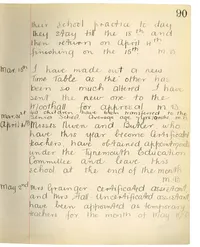 90
their School practice to day
they stay till the 15th and
then return on April 11th
finishing on the 15th M.B.
Mar. 18th I have made out a new
Time Table as the other has
been so much altered I have
sent the new one to the
for approval M.B.
children have been
Senior School. Average age
April Misses Owen and Butler who
have this year become Certificated
teachers have obtained appointments
under the Tynemouth Education
Committee and leave this
school at the end of the month
M.B.
May Mrs Grainger Certificated assistant
and Mrs Uncertificated assistant
have been appointed as temporary
teachers for the month of May